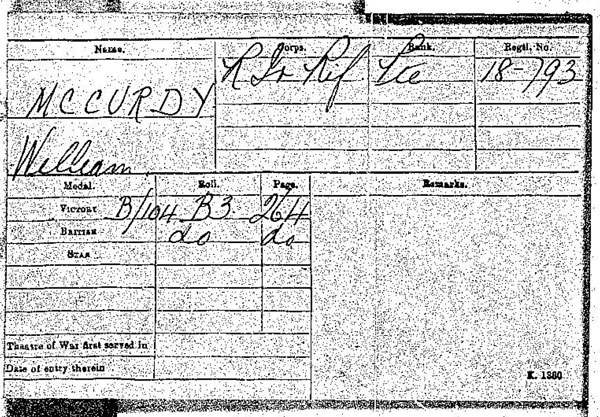 Name. Corps. Rank. Regtl. No.
McCURDY R Ir Rif Pte 18-793
William
Medal. Roll. Page. Remarks.
VICTORY B/104 B3 264
BRITISH do do
STAR
Theatre of War first served in
Date of entry therein
K. 1380